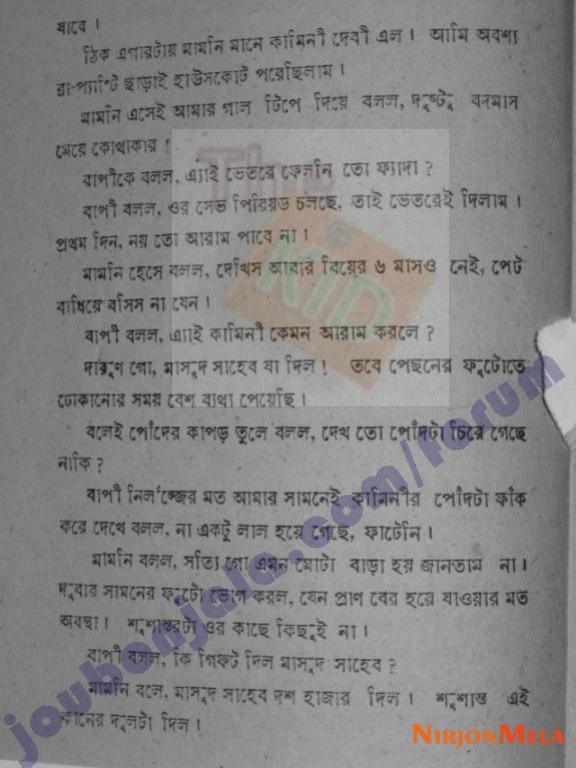 যাবে।
ঠিক এগারটায় মামনি মানে কামিনী দেবী এল। আমি অবশ্য
ব্রা-প্যান্টি ছাড়াই হাউসকোট পরেছিলাম।
মামনি এসেই আমার গাল টিপে দিয়ে বলল, দুষ্টু বদমাস
মেয়ে কোথাকার!
বাপীকে বলল, এ্যাই ভেতরে ফেলনি তো ফ্যাদা?
বাপী বলল, ওর সেভ পিরিয়ড চলছে, তাই ভেতরেই দিলাম।
প্রথম দিন, নয় তো আরাম পাবে না।
মামনি হেসে বলল, দেখিস আবার বিয়ের ৬ মাসও নেই, পেট
বাধিয়ে বসিস না যেন।
বাপী বলল, এ্যাই কামিনী কেমন আরাম করলে?
দারুণ গো, মাসুদ সাহেব যা দিল! তবে পেছনের ফুটোতে
ঢোকানোর সময় বেশ ব্যথা পেয়েছি।
বলেই পোঁদের কাপড় তুলে বলল, দেখ তো পোঁদটা চিরে গেছে
নাকি?
বাপী নির্লজ্জের মত আমার সামনেই কামিনীর পোঁদটা ফাঁক
করে দেখে বলল, না একটু লাল হয়ে গেছে, ফাটেনি।
মামনি বলল, সত্যি গো এমন মোটা বাড়া হয় জানতাম না।
দুবার সামনের ফুটো ভোগ করল, যেন প্রাণ বের হয়ে যাওয়ার মত
অবস্থা। শ্বশুরটা ওর কাছে কিছুই না।
বাপী বলল, কি গিফট দিল মাসুদ সাহেব?
মামনি বলে, মাসুদ সাহেব দশ হাজার দিল। সুশান্ত এই
কানের দুলটা দিল।
The
KID
joubonjala.com/forum
NIRJONMELA